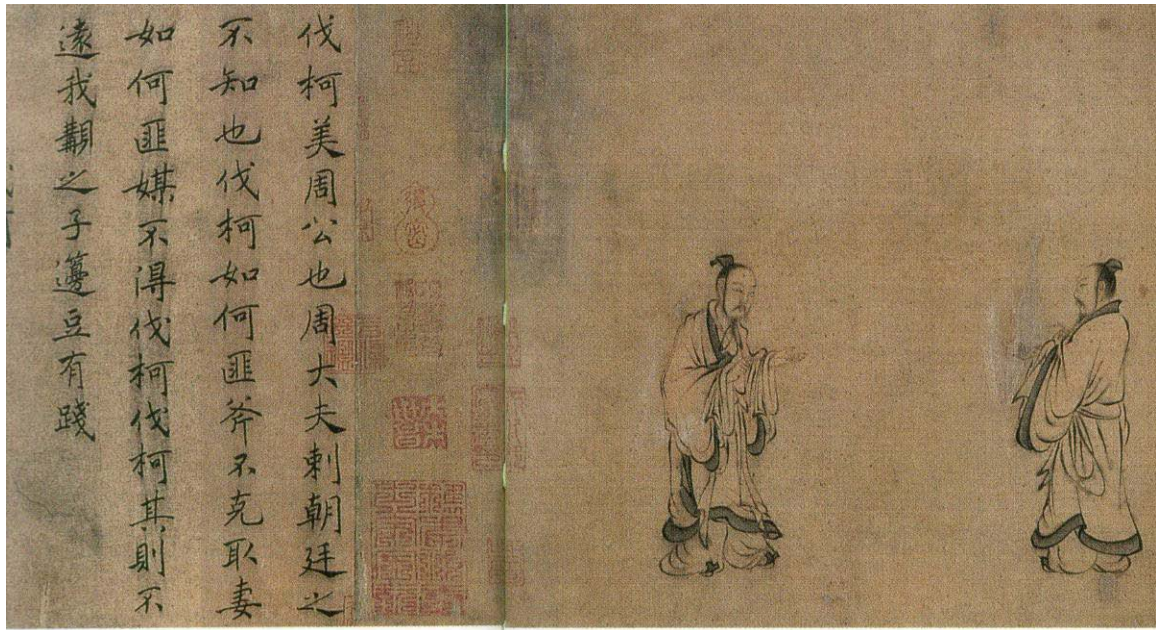 伐柯美周公也周大夫刺朝廷之
不知也伐柯如何匪斧不克取妻
如何匪媒不得伐柯伐柯其則不
遠我覯之子籩豆有踐